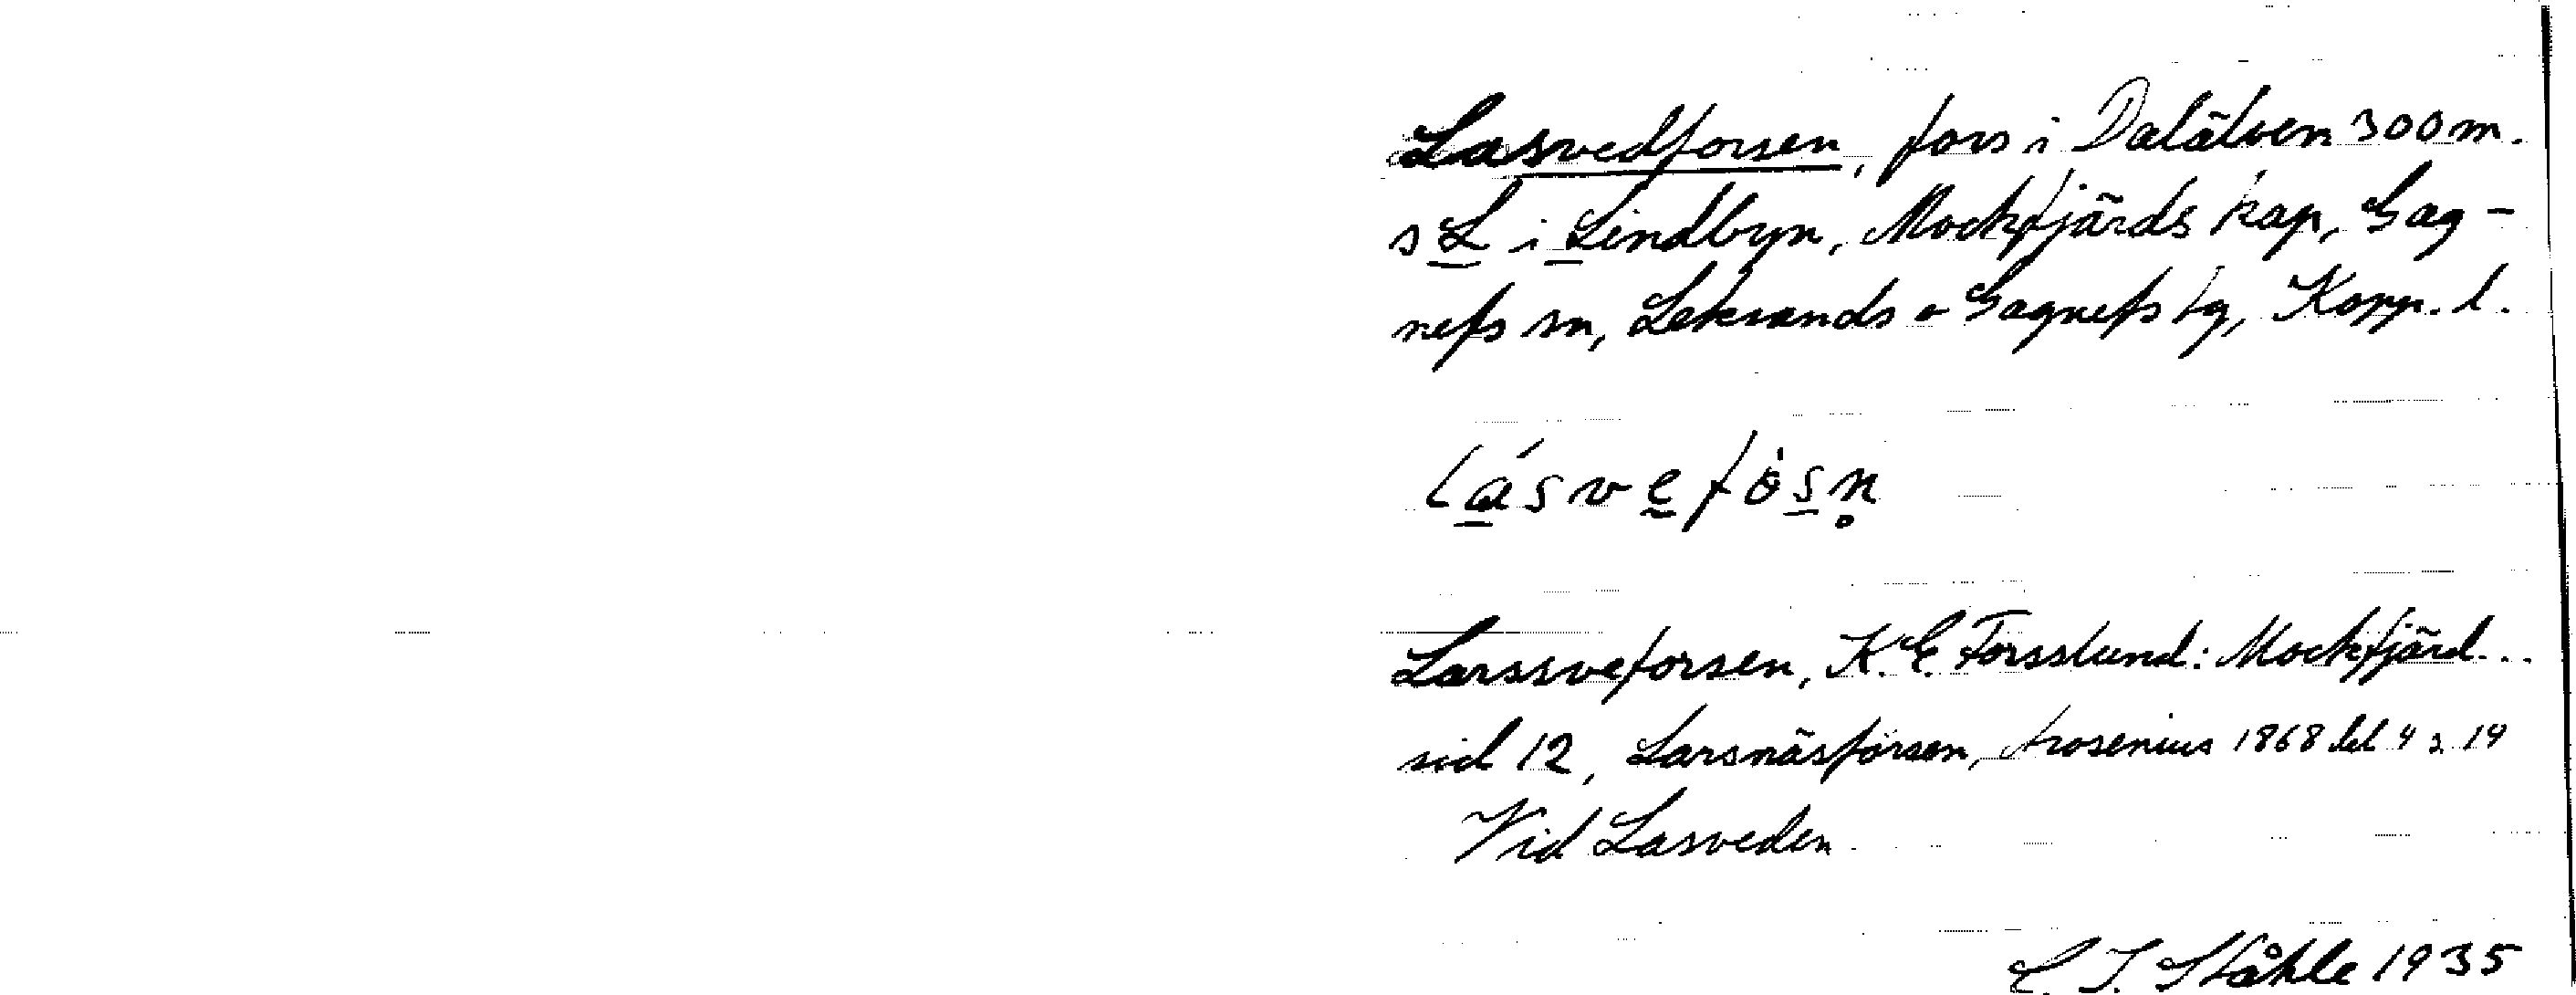 Lasvedforsen, fors i Dalälven 300 m.
s L i Lindbyn, Mockfjärds kap, Gag-
nefs sn, Leksands o Gagnefs tg, Kopp. l.
lásvefòsn̥
Larssveforsen, K. E. Forsslund: Mockfjärd...
sid 12, Larsnäsforsen, Arosenius 1868 del 4 s. 14
Vid Lasveden
C. I. Ståhle 1935